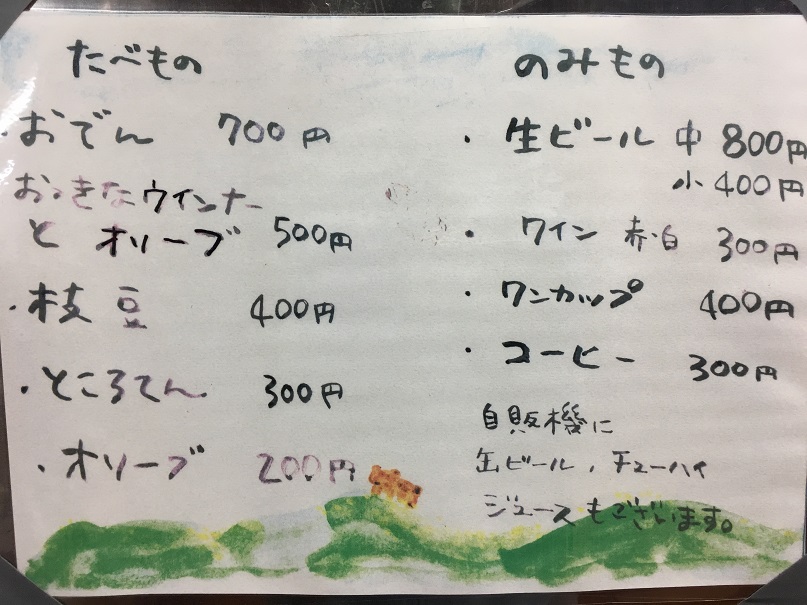 たべもの
・おでん 700円
おおきなウインナー
と オリーブ 500円
・枝豆 400円
・ところてん 300円
・オリーブ 200円
のみもの
・生ビール 中 800円
小 400円
・ワイン 赤・白 300円
・ワンカップ 400円
・コーヒー 300円
自販機に
缶ビール、チューハイ
ジュースもございます。